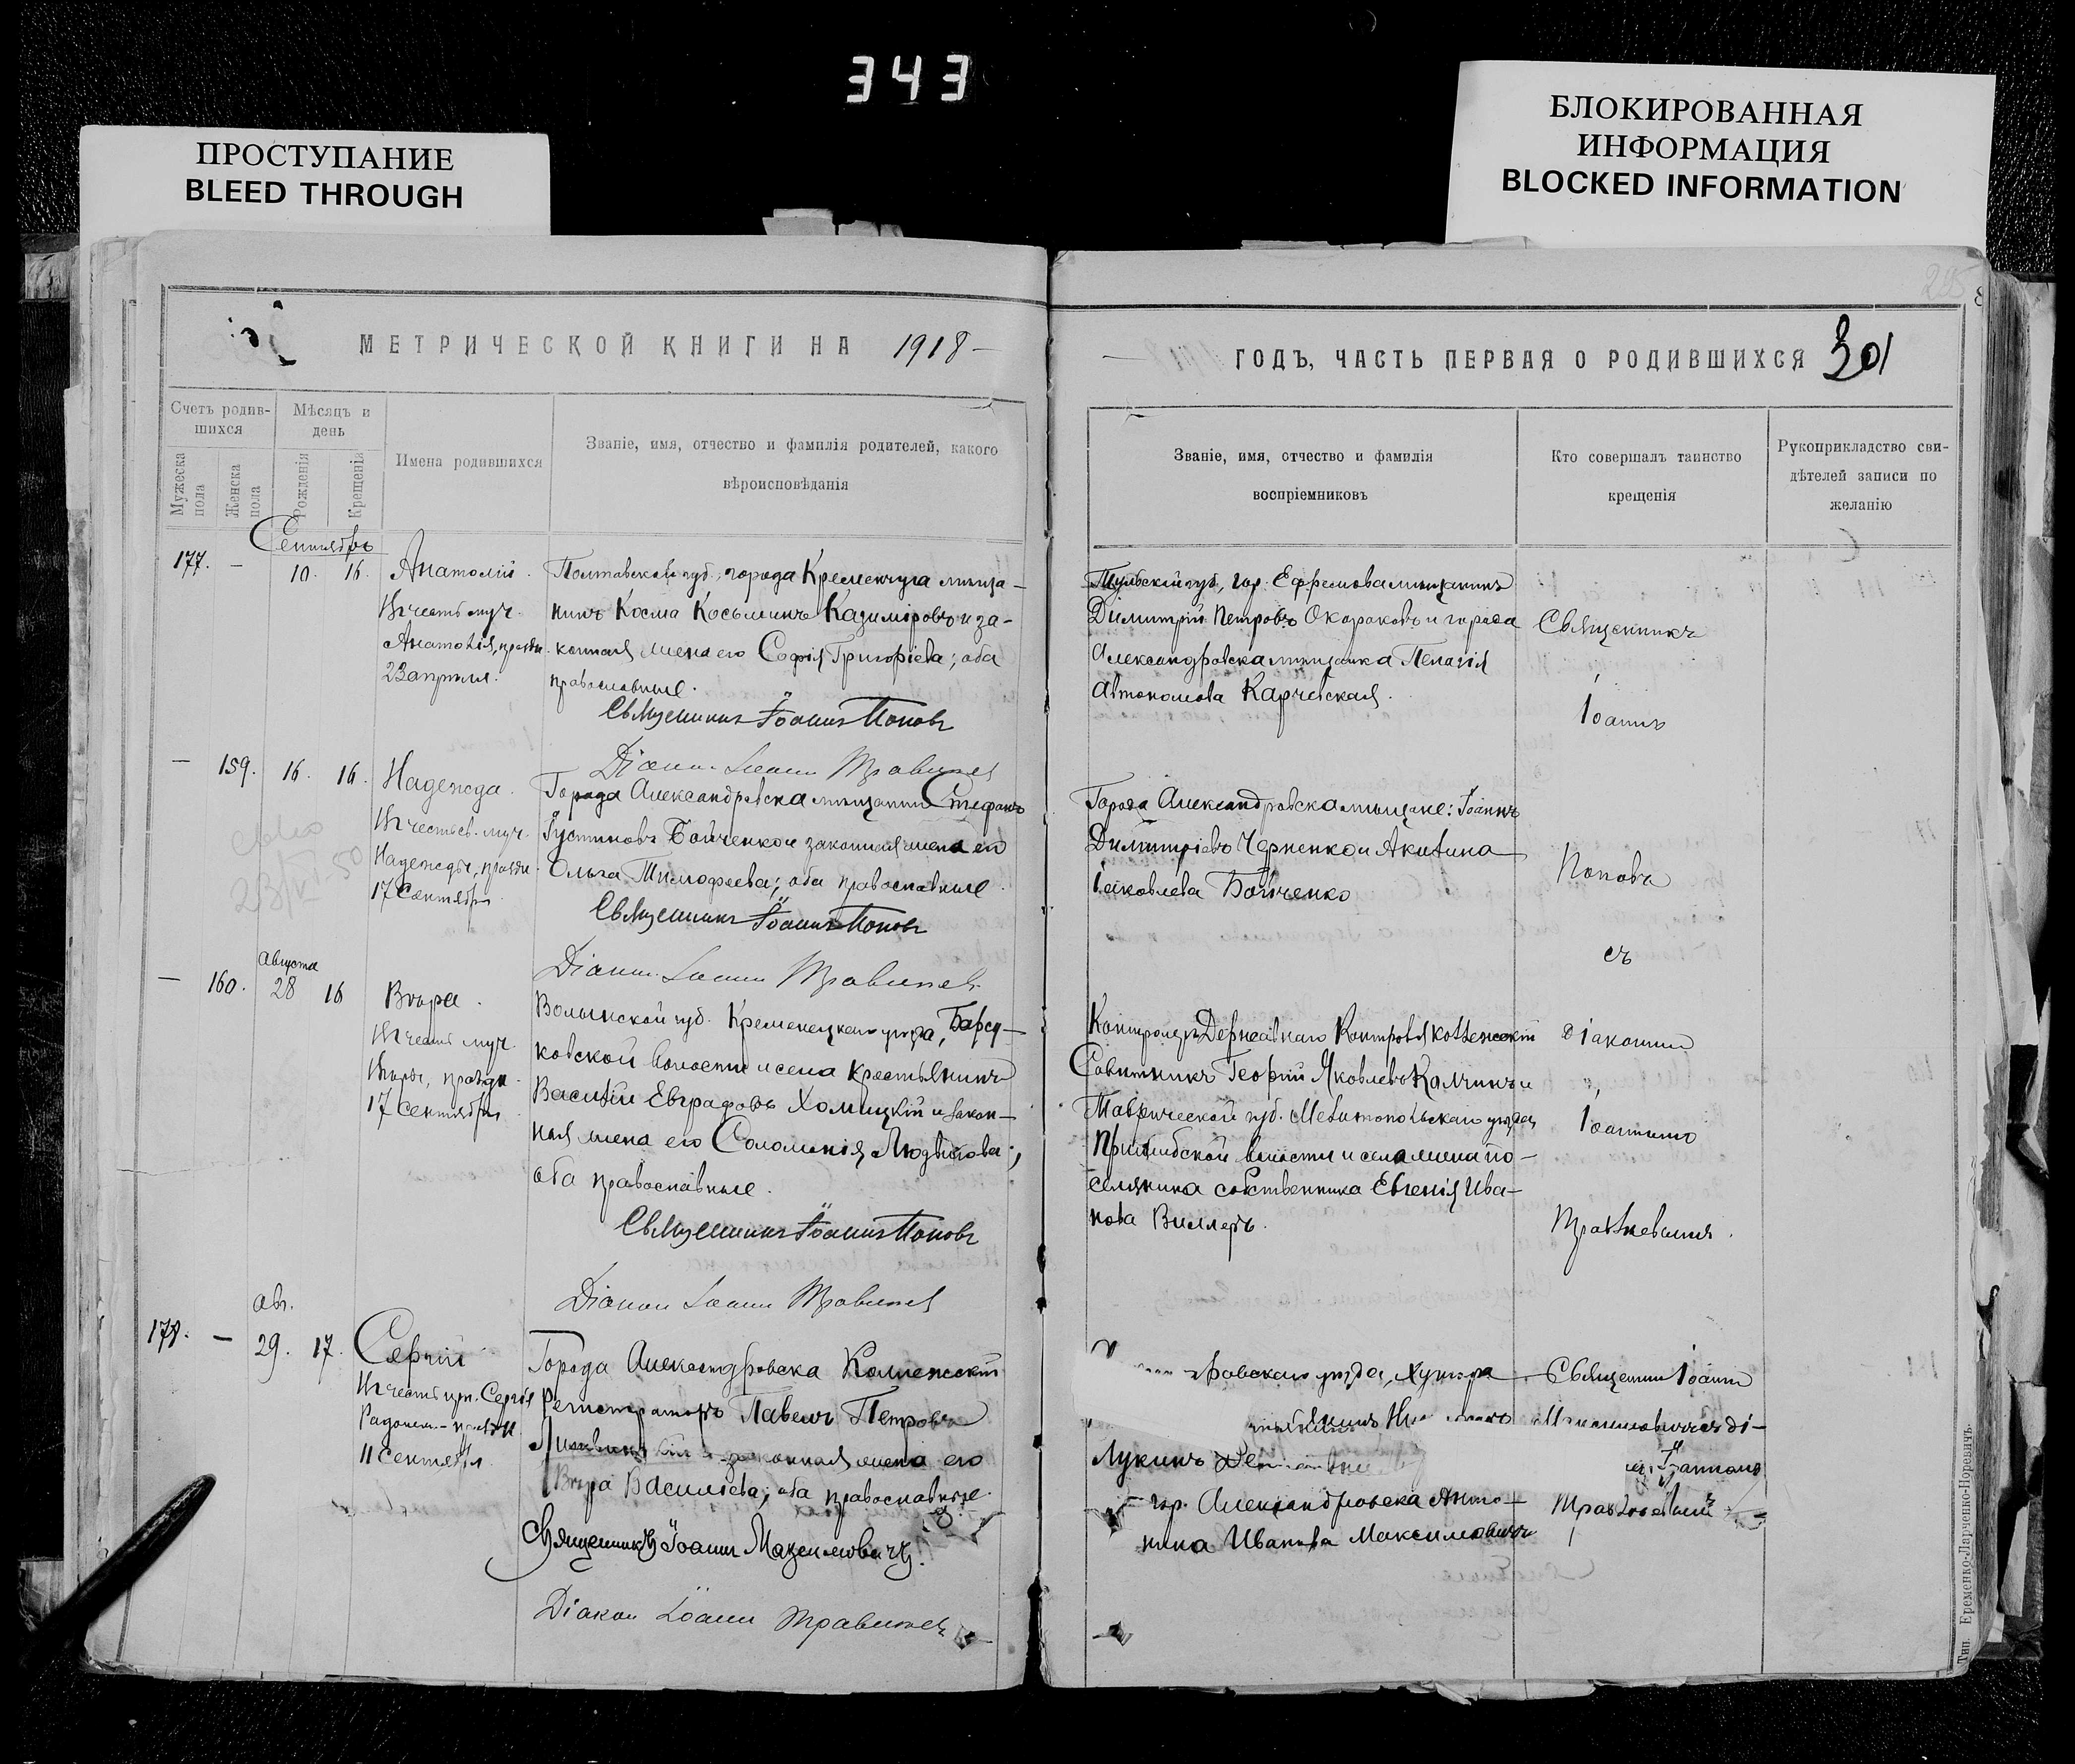 343
ПРОСТУПАНИЕ
BLEED THROUGH
БЛОКИРОВАННАЯ
ИНФОРМАЦИЯ
BLOCKED INFORMATION
225
МЕТРИЧЕСКОЙ КНИГИ НА 1918
ГОДЪ, ЧАСТЬ ПЕРВАЯ О РОДИВШИХСЯ 301
Счетъ родив-
шихся
Мѣсяцъ и
день
Мужеска
пола
Женска
пола
Рожденія
Крещенія
Имена родившихся
Званіе, имя, отчество и фамилія родителей, какого
вѣроисповѣданія
Званіе, имя, отчество и фамилія
воспріемниковъ
Кто совершалъ таинство
крещенія
Рукоприкладство сви-
дѣтелей записи по
желанію
Сентябрь
177. – 10. 16. Анатолій.
Въ честь муч.
Анатолія, праздн.
23 апрѣля.
Полтавской губ., города Кременчуга мѣща-
нинъ Косма Косьминъ Казиміровъ и за-
конная жена его Софія Григоріева; оба
православные.
Священникъ Іоаннъ Поповъ
Діаконъ Іоаннъ
Тульской губ., гор. Ефремова мѣщанинъ
Димитрій Петровъ Окороковъ и города
Александровска мѣщанка Пелагія
Автономова Карчевская.
Священникъ
Іоаннъ
– 159. 16. 16. Надежда.
Въ честь св. муч.
Надежды, праздн.
17 Сентября
Города Александровска мѣщанинъ Стефанъ
Іустиновъ Бойченко и законная жена его
Ольга Тимофеева; оба православные.
Священникъ Іоаннъ Поповъ
Діаконъ Іоаннъ
Города Александровска мѣщане: Іоаннъ
Димитріевъ Черненко и Акилина
Іаковлева Бойченко
Поповъ
съ
Августа
– 160. 28 16 Вѣра.
Въ честь муч.
Вѣры, праздн.
17 Сентября
Волынской губ. Кременецкаго уѣзда,
ковской волости и села крестьянинъ
Василій Евграфовъ Хомицкій и закон-
ная жена его Соломонія Людвигова;
оба православные.
Священникъ Іоаннъ Поповъ
Діаконъ Іоаннъ
Контролеръ Державнаго Контроля коллежскій
Совѣтникъ Георгій Яковлевъ Калчинъ и
Таврической губ. Мелитопольскаго уѣзда,
Пришибской волости и села жена по-
селянина собственника Евгенія Ива-
нова Виллеръ.
діакономъ
Іоанномъ
Авг.
178. – 29. 17. Сергій
Въ честь преп. Сергія
Радонеж. – праздн.
11 Сентября.
Города Александровска Коллежскій
Регистраторъ Павелъ Петровъ
законная жена его
Вѣра Василіева; оба православные.
Священникъ Іоаннъ Максимовичъ.
Діаконъ Іоаннъ
уѣзда, хутора
Лукинъ
гор. Александровска Анто-
нина Иванова Максимовичъ
Священникъ Іоаннъ
Максимовичъ съ ді-
Іоанномъ
Тип. Еременко-Ларченко-Норевичъ.